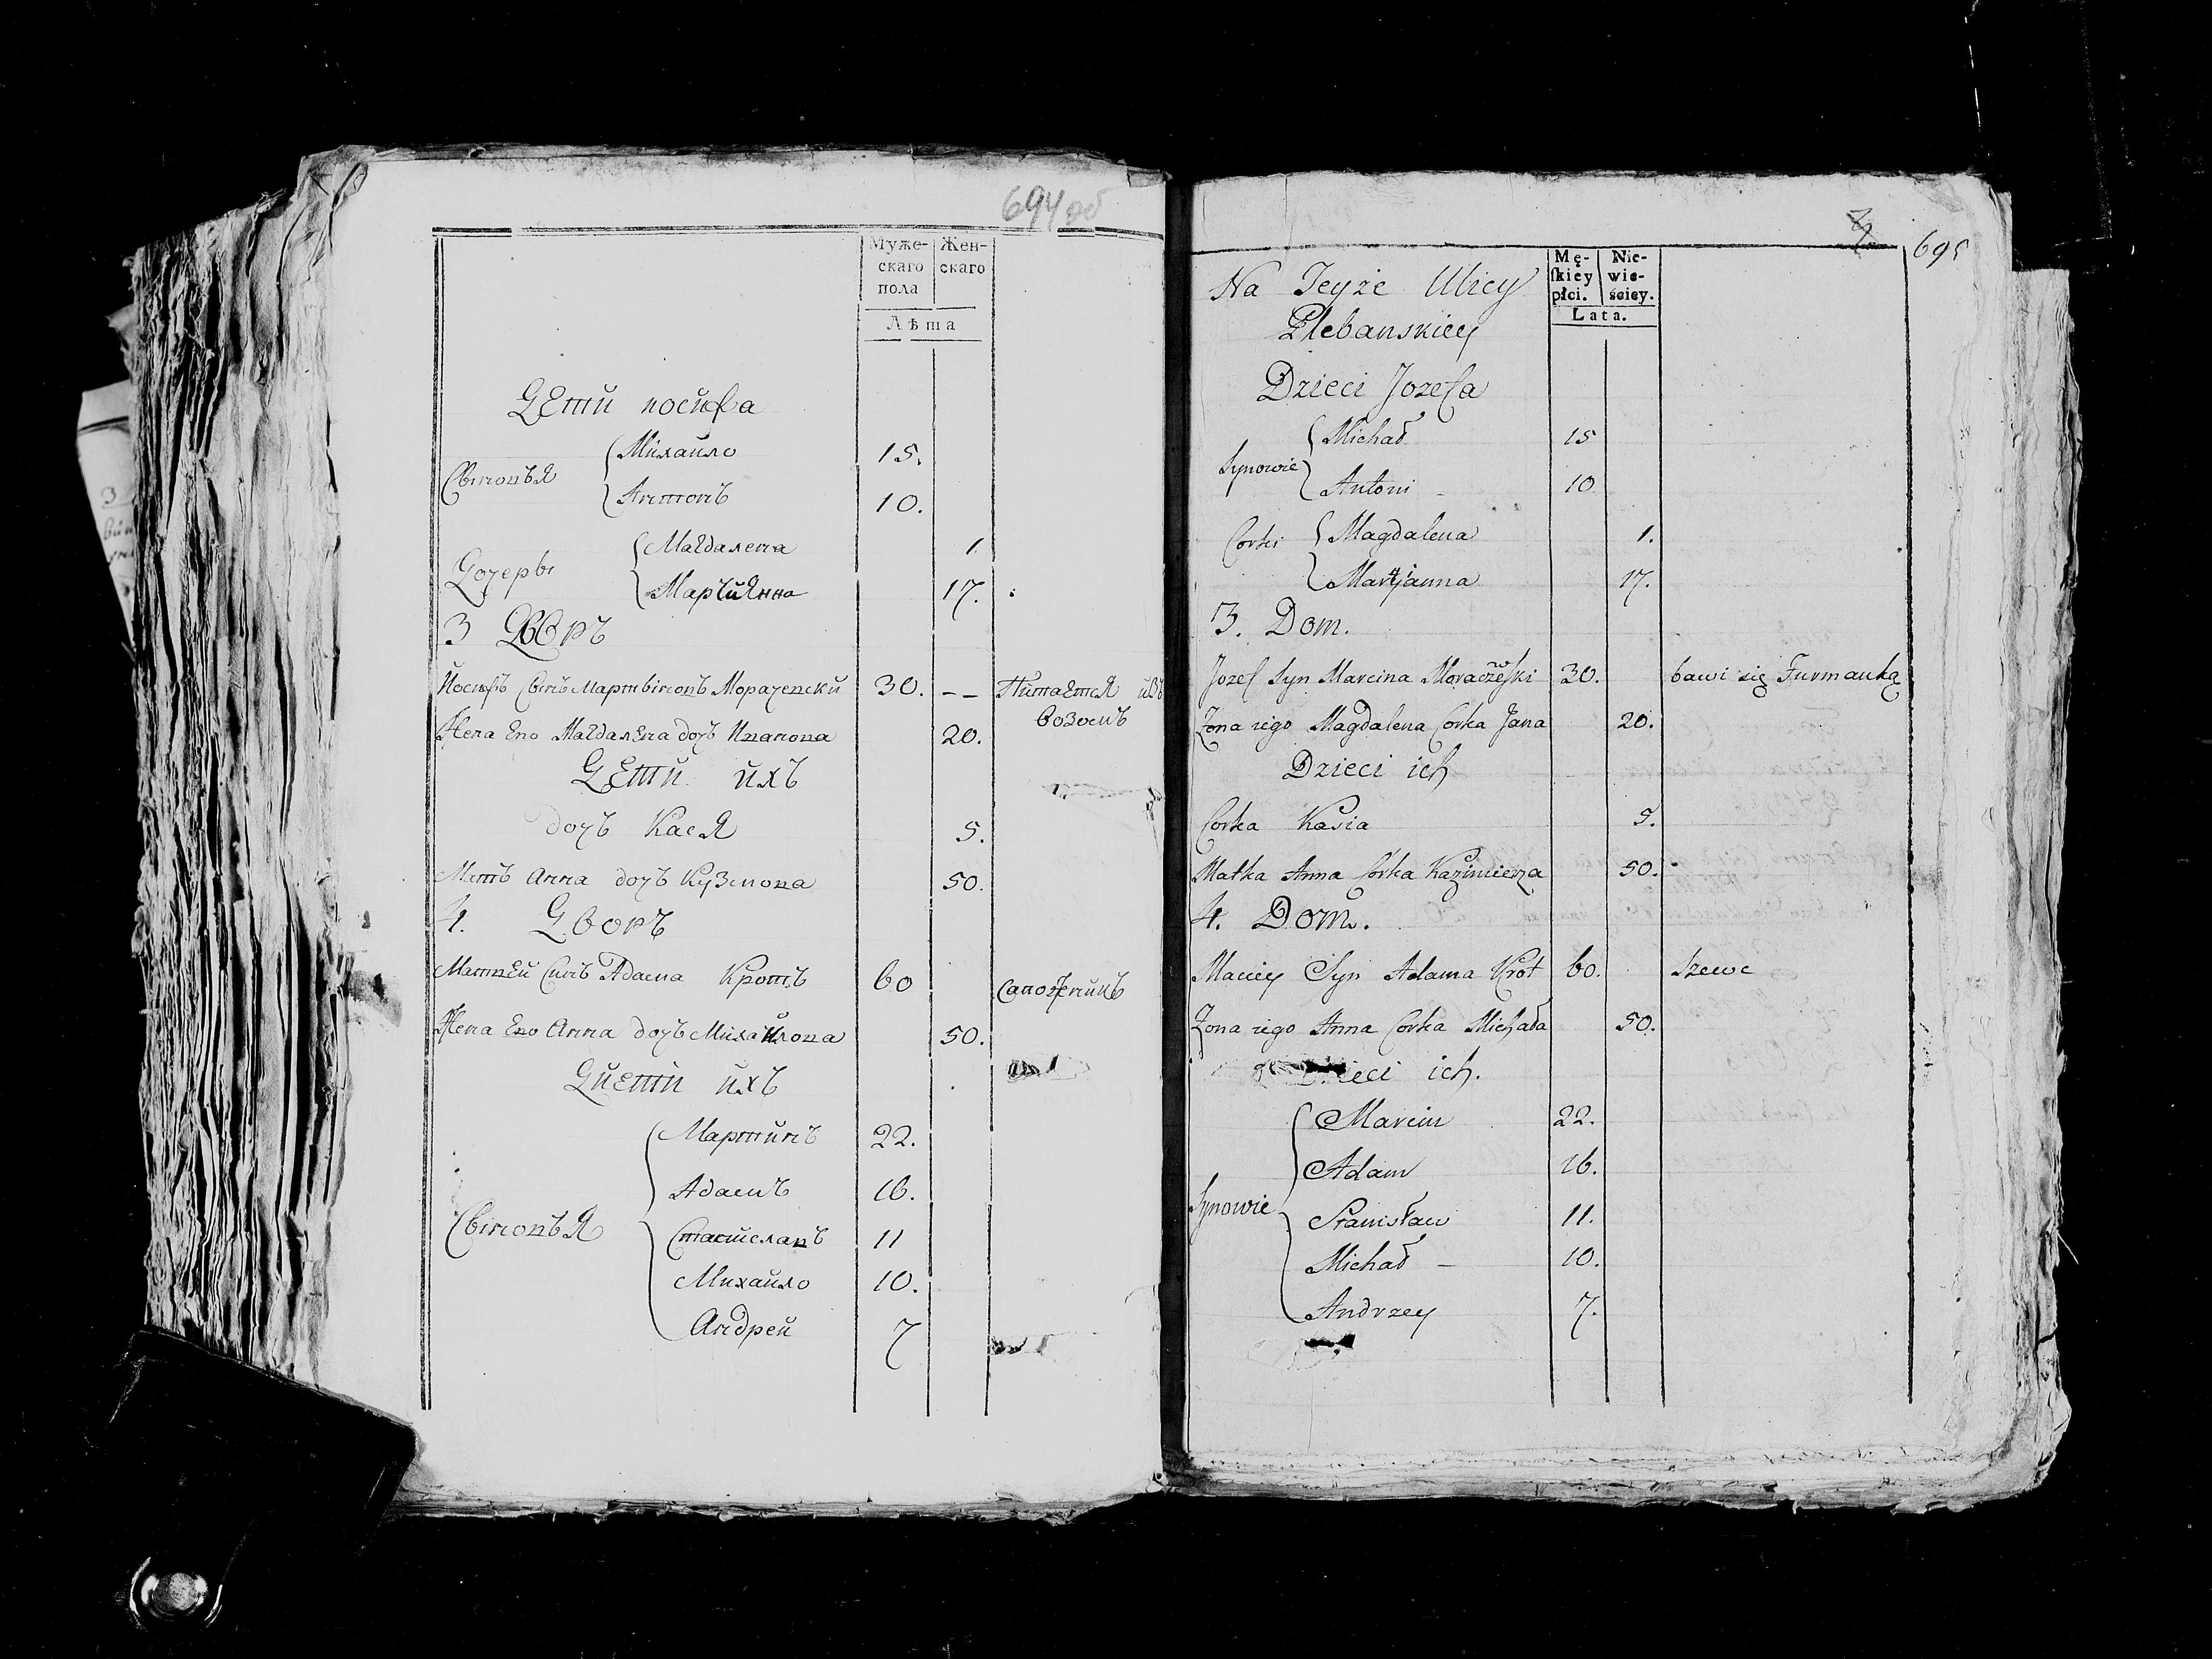 694 об
Муже-
скаго
пола
Жен-
скаго
Лѣта
Дети иосифа
Сыновья
Михайло 15.
Антонъ 10.
Дочеры
Магдалена 1
Марцианна 17.
3 Дворъ
Иосифъ Сынъ Мартыновъ Морачевски 30. -- Питается изъ
возомъ
Жена Его Магдалена дочъ Иванова 20.
Дети ихъ
дочъ Кася 5.
Мать Анна дочъ Кузмова 50.
4. Дворъ
Матвей Синъ Адама Кротъ 60 Сапожникъ
Жена Его Анна дочъ Михайлова 50.
Диети ихъ
Сыновья
Мартинъ 22.
Адамъ 16.
Станиславъ 11
Михайло 10.
Андрей 7
695
Mę-
skiey
płci.
Nie-
wie-
ściey.
Lata.
Na Teyże Ulicy
Plebanskiey
Dzieci Jozefa
Synowie
Michał 15
Antoni - 10
Corki
Magdalena 1.
Maryanna 17.
3. Dom.
Jozef Syn Marcina Moraczewski 30. bawi się Furmanką
Zona iego Magdalena Corka Jana 20.
Dzieci ich
Corka Kasia 5.
Matka Anna Córka Kazimierza 50.
4. Dom.
Maciey Syn Adama Krot 60. Szewc
Zona iego Anna Corka Michała 50.
Dzieci ich.
Synowie
Marcin 22.
Adam 16.
Stanisław 11.
Michał - 10.
Andrzey 7.